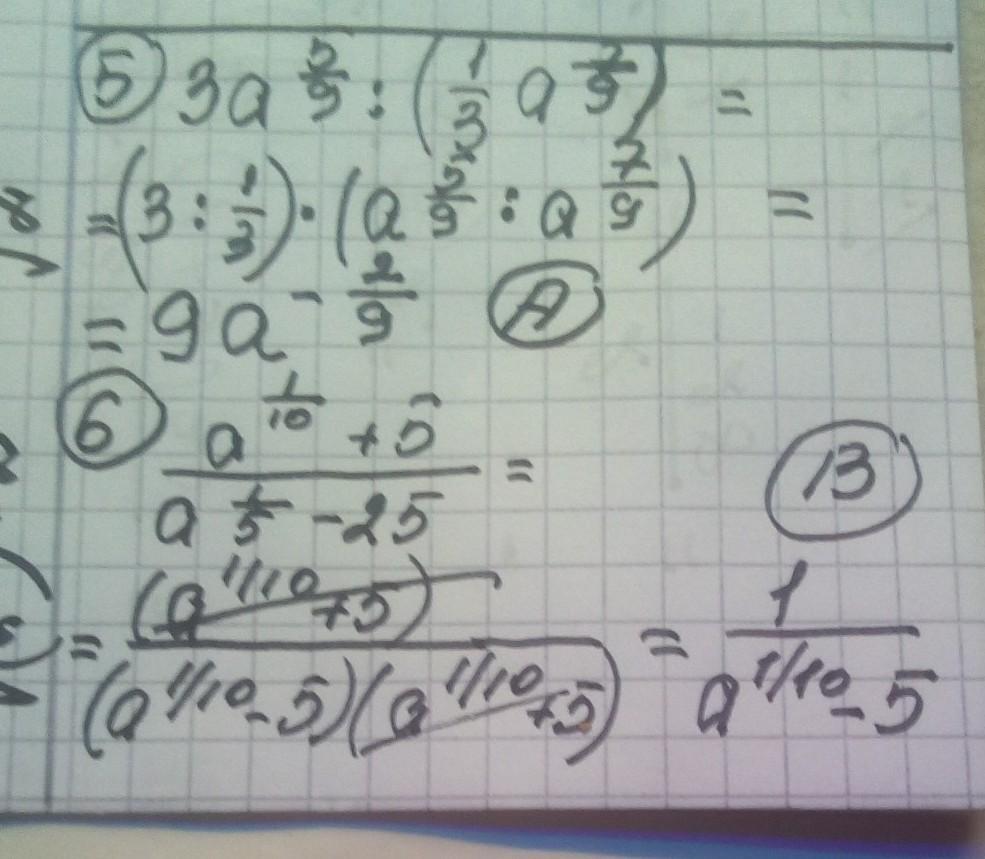 ⑤ 3a^(5/9) : (1/3 a^(7/9)) =
= (3 : 1/3) · (a^(5/9) : a^(7/9)) =
= 9a^(-2/9) Ⓐ
⑥ (a^(1/10) + 5)/(a^(1/5) - 25) = Ⓑ
= (a^(1/10) + 5)/((a^(1/10) - 5)(a^(1/10) + 5)) = 1/(a^(1/10) - 5)